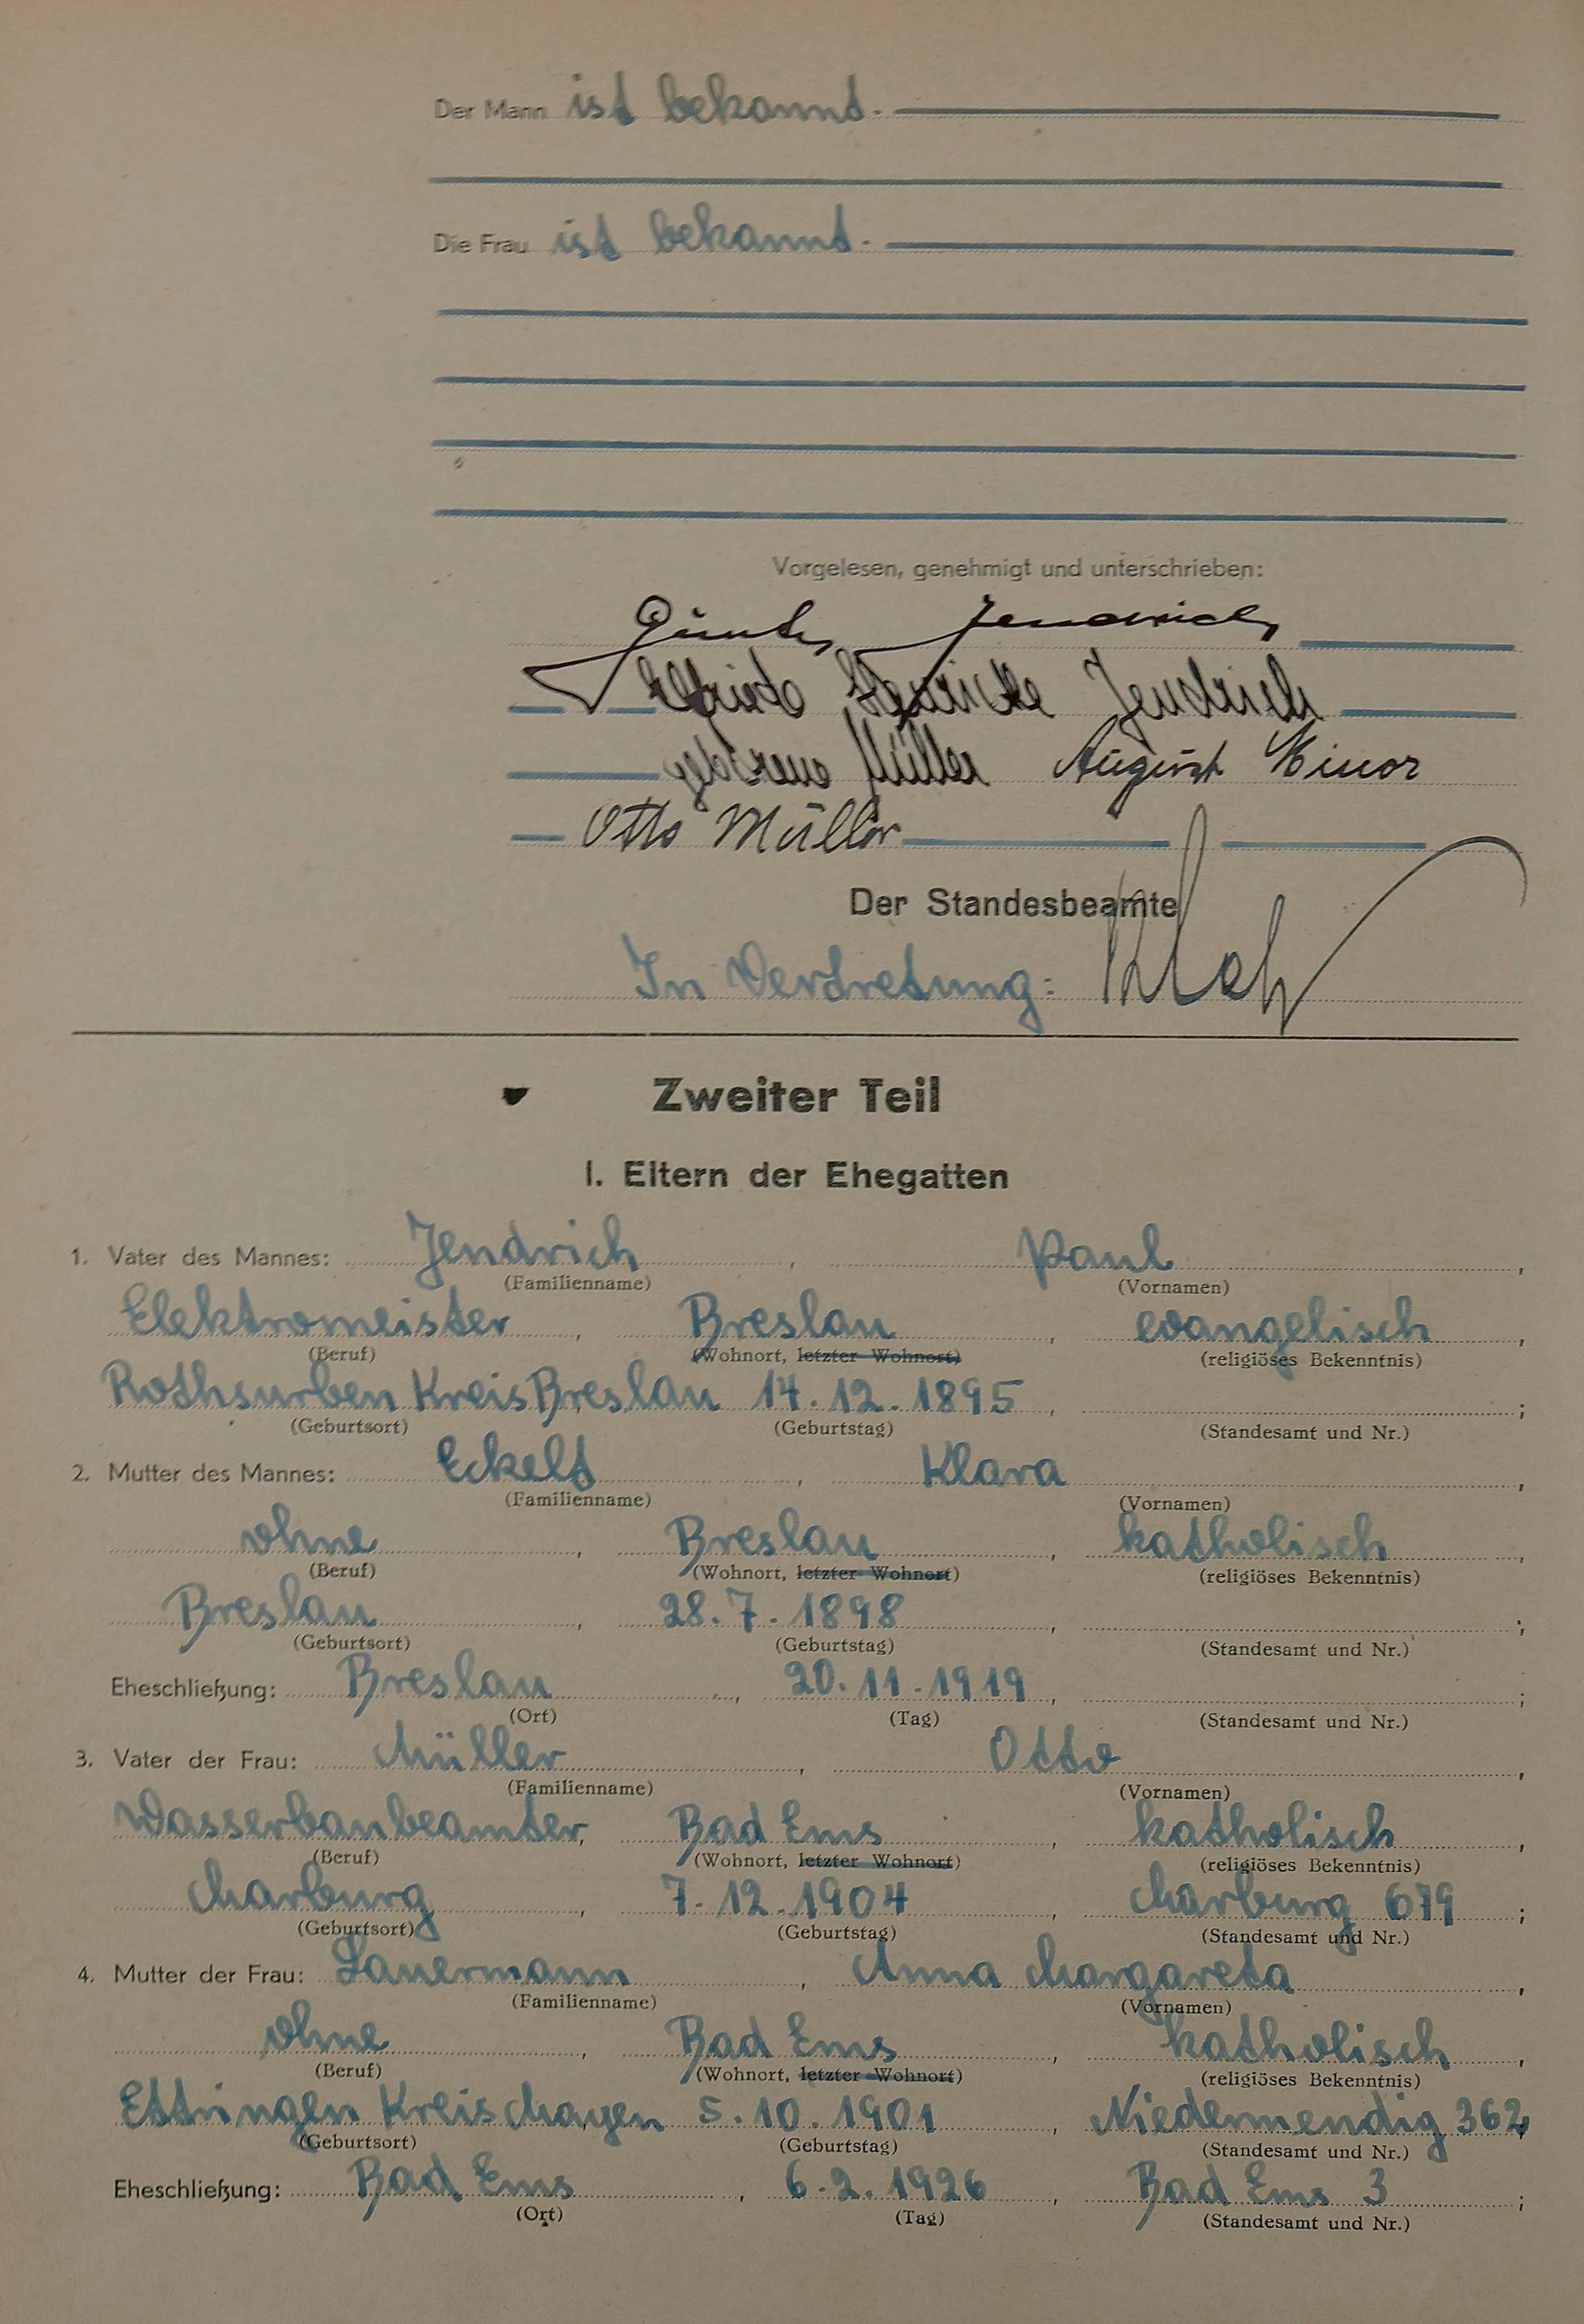 Der Mann ist bekannt.
Die Frau ist bekannt.
Vorgelesen, genehmigt und unterschrieben:
Günter Jendrich
Elfriede Jendrich
geborene Müller August Minor
Otto Müller
Der Standesbeamte
In Vertretung:
Zweiter Teil
I. Eltern der Ehegatten
1. Vater des Mannes: Jendrich, Paul,
(Familienname) (Vornamen)
Elektromeister, Breslau, evangelisch,
(Beruf) (Wohnort, letzter Wohnort) (religiöses Bekenntnis)
Rothsürben Kreis Breslau, 14.12.1895, ;
(Geburtsort) (Geburtstag) (Standesamt und Nr.)
2. Mutter des Mannes: Eckelt, Klara,
(Familienname) (Vornamen)
ohne, Breslau, katholisch,
(Beruf) (Wohnort, letzter Wohnort) (religiöses Bekenntnis)
Breslau, 28.7.1898, ;
(Geburtsort) (Geburtstag) (Standesamt und Nr.)
Eheschließung: Breslau, 20.11.1919, ;
(Ort) (Tag) (Standesamt und Nr.)
3. Vater der Frau: Müller, Otto,
(Familienname) (Vornamen)
Wasserbaubeamter, Bad Ems, katholisch,
(Beruf) (Wohnort, letzter Wohnort) (religiöses Bekenntnis)
Marburg, 7.12.1904, Marburg 679;
(Geburtsort) (Geburtstag) (Standesamt und Nr.)
4. Mutter der Frau: Lauermann, Anna Margareta,
(Familienname) (Vornamen)
ohne, Bad Ems, katholisch,
(Beruf) (Wohnort, letzter Wohnort) (religiöses Bekenntnis)
Ettringen Kreis Mayen, 5.10.1901, Niedermendig 362;
(Geburtsort) (Geburtstag) (Standesamt und Nr.)
Eheschließung: Bad Ems, 6.2.1926, Bad Ems 3;
(Ort) (Tag) (Standesamt und Nr.)